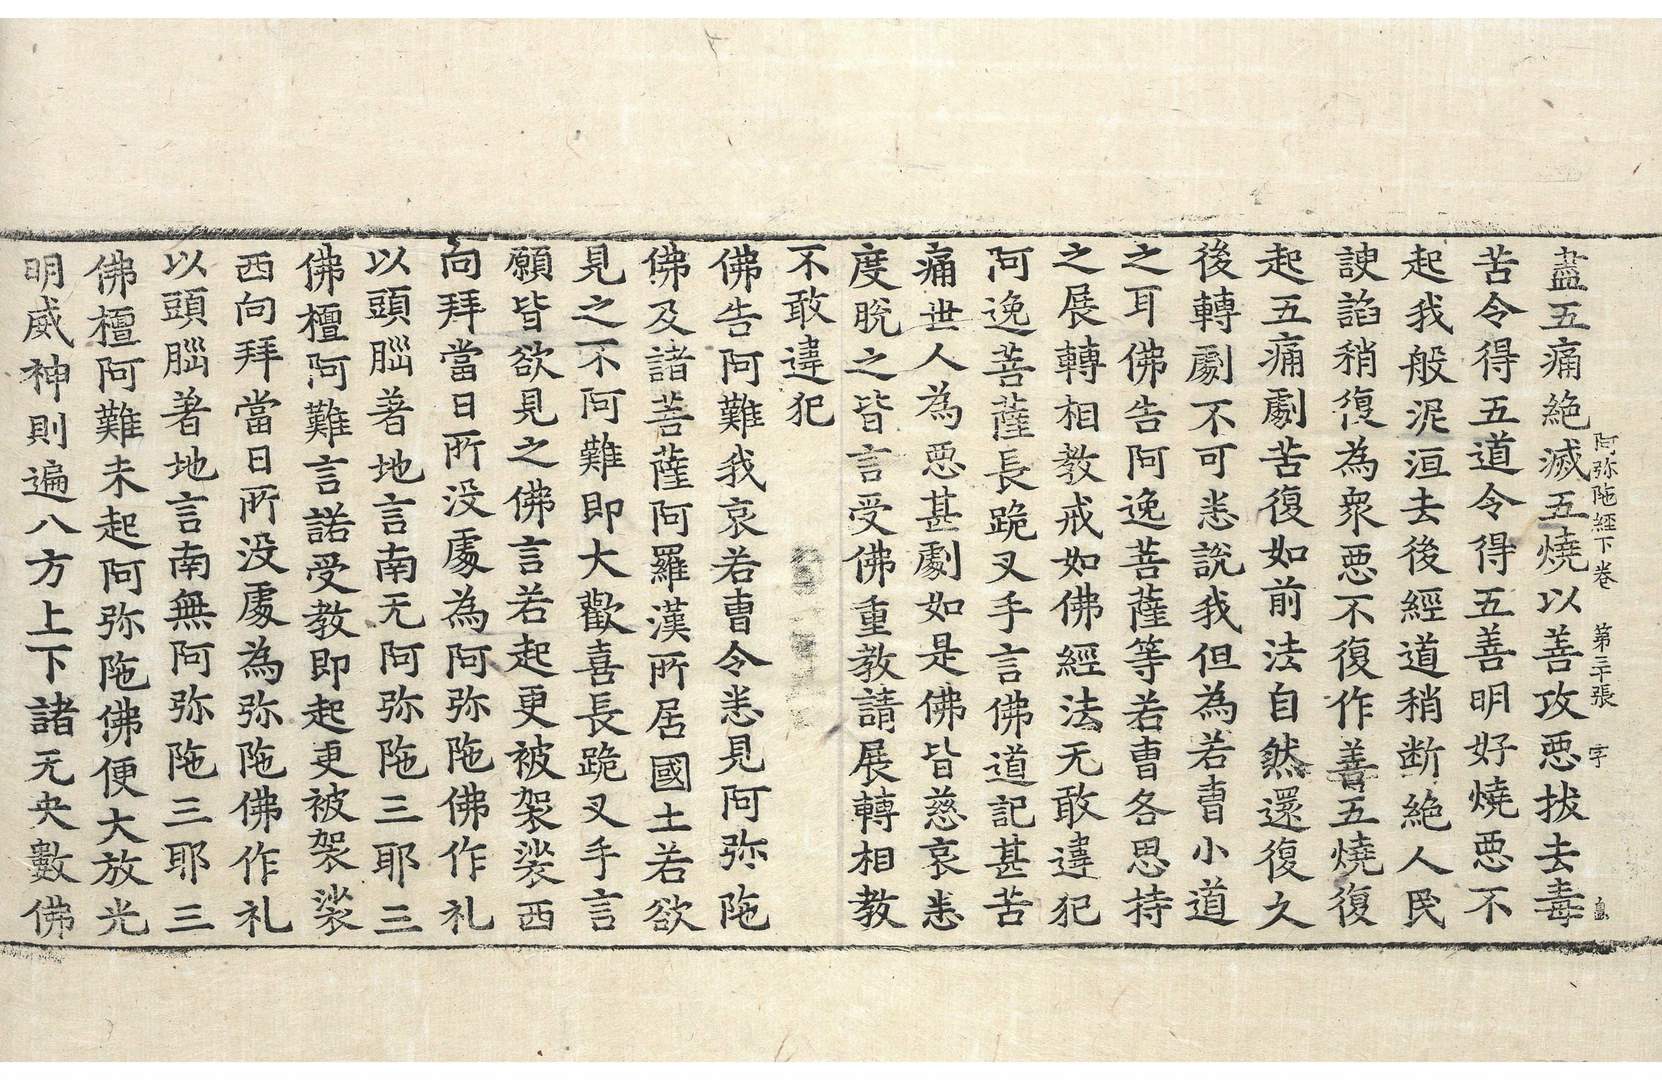 阿弥陁經下卷 第三十張 字
盡五痛絶滅五燒以善攻惡拔去毒
苦令得五道令得五善明好燒惡不
起我般泥洹去後經道稍断絶人民
諛諂稍復為衆惡不復作善五燒復
起五痛劇苦復如前法自然還復久
後轉劇不可悉說我但為若曹小道
之耳佛告阿逸菩薩等若曹各思持
之展轉相教戒如佛經法无敢違犯
阿逸菩薩長跪叉手言佛道記甚苦
痛世人為惡甚劇如是佛皆慈哀悉
度脫之皆言受佛重教請展轉相教
不敢違犯
佛告阿難我哀若曹令悉見阿弥陁
佛及諸菩薩阿羅漢所居國土若欲
見之不阿難即大歡喜長跪叉手言
願皆欲見之佛言若起更被袈裟西
向拜當日所没處為阿弥陁佛作礼
以頭腦著地言南无阿弥陁三耶三
佛檀阿難言諾受教即起更被袈裟
西向拜當日所没處為弥陁佛作礼
以頭腦著地言南無阿弥陁三耶三
佛檀阿難未起阿弥陁佛便大放光
明威神則遍八方上下諸无央數佛